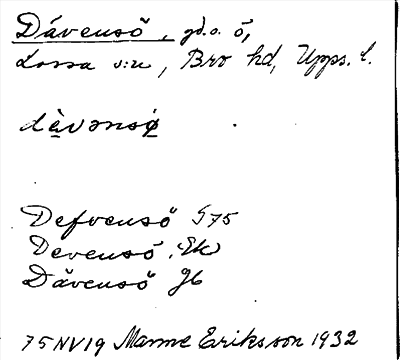 Dävensö, gd. o. ö,
Lossa sn, Bro hd, Upps. l.
dèvənsø
Defvensö G75
Devensö Ek
Dävensö Jb
75NV19 Manne Eriksson 1932